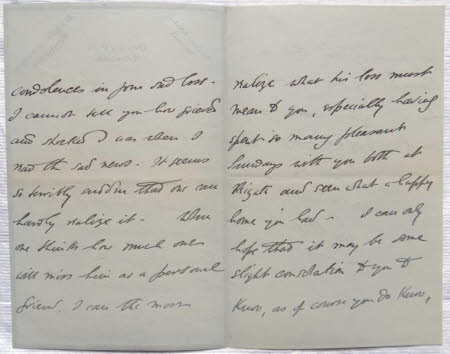 condolences in your sad loss -
I cannot tell you how grieved
and shocked I was when I
read the sad news - It seems
so terribly sudden that one can
hardly realize it - When
one thinks how much one
will miss him as a personal
friend, I can the more
realize what his loss must
mean to you, especially having
spent so many pleasant
Sundays with you both at
Reigate and seen what a happy
home you had - I can only
hope that it may be some
slight consolation to you to
know, as of course you do know,